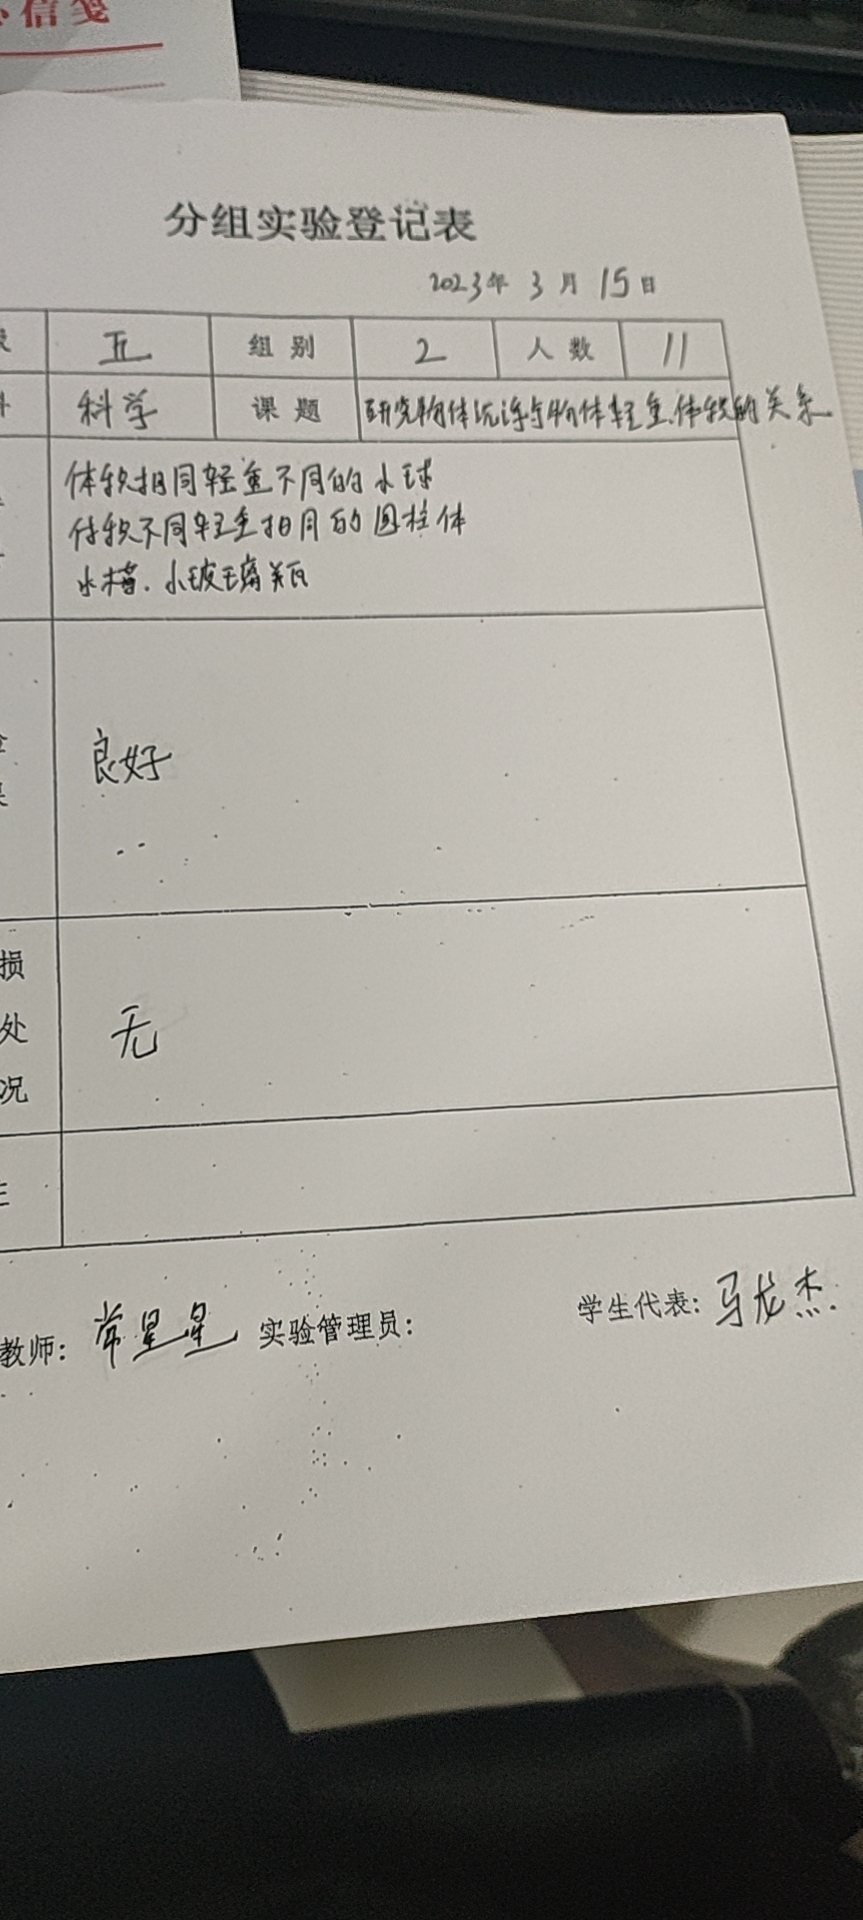 信笺
分组实验登记表
2023年 3月 15日
五 组别 2 人数 11
科学 课题 研究物体沉浮与物体轻重、体积的关系
体积相同轻重不同的小球
体积不同轻重相同的圆柱体
水槽、小玻璃瓶
良好
损
处
况
无
教师: 常星星 实验管理员: 学生代表: 马龙杰